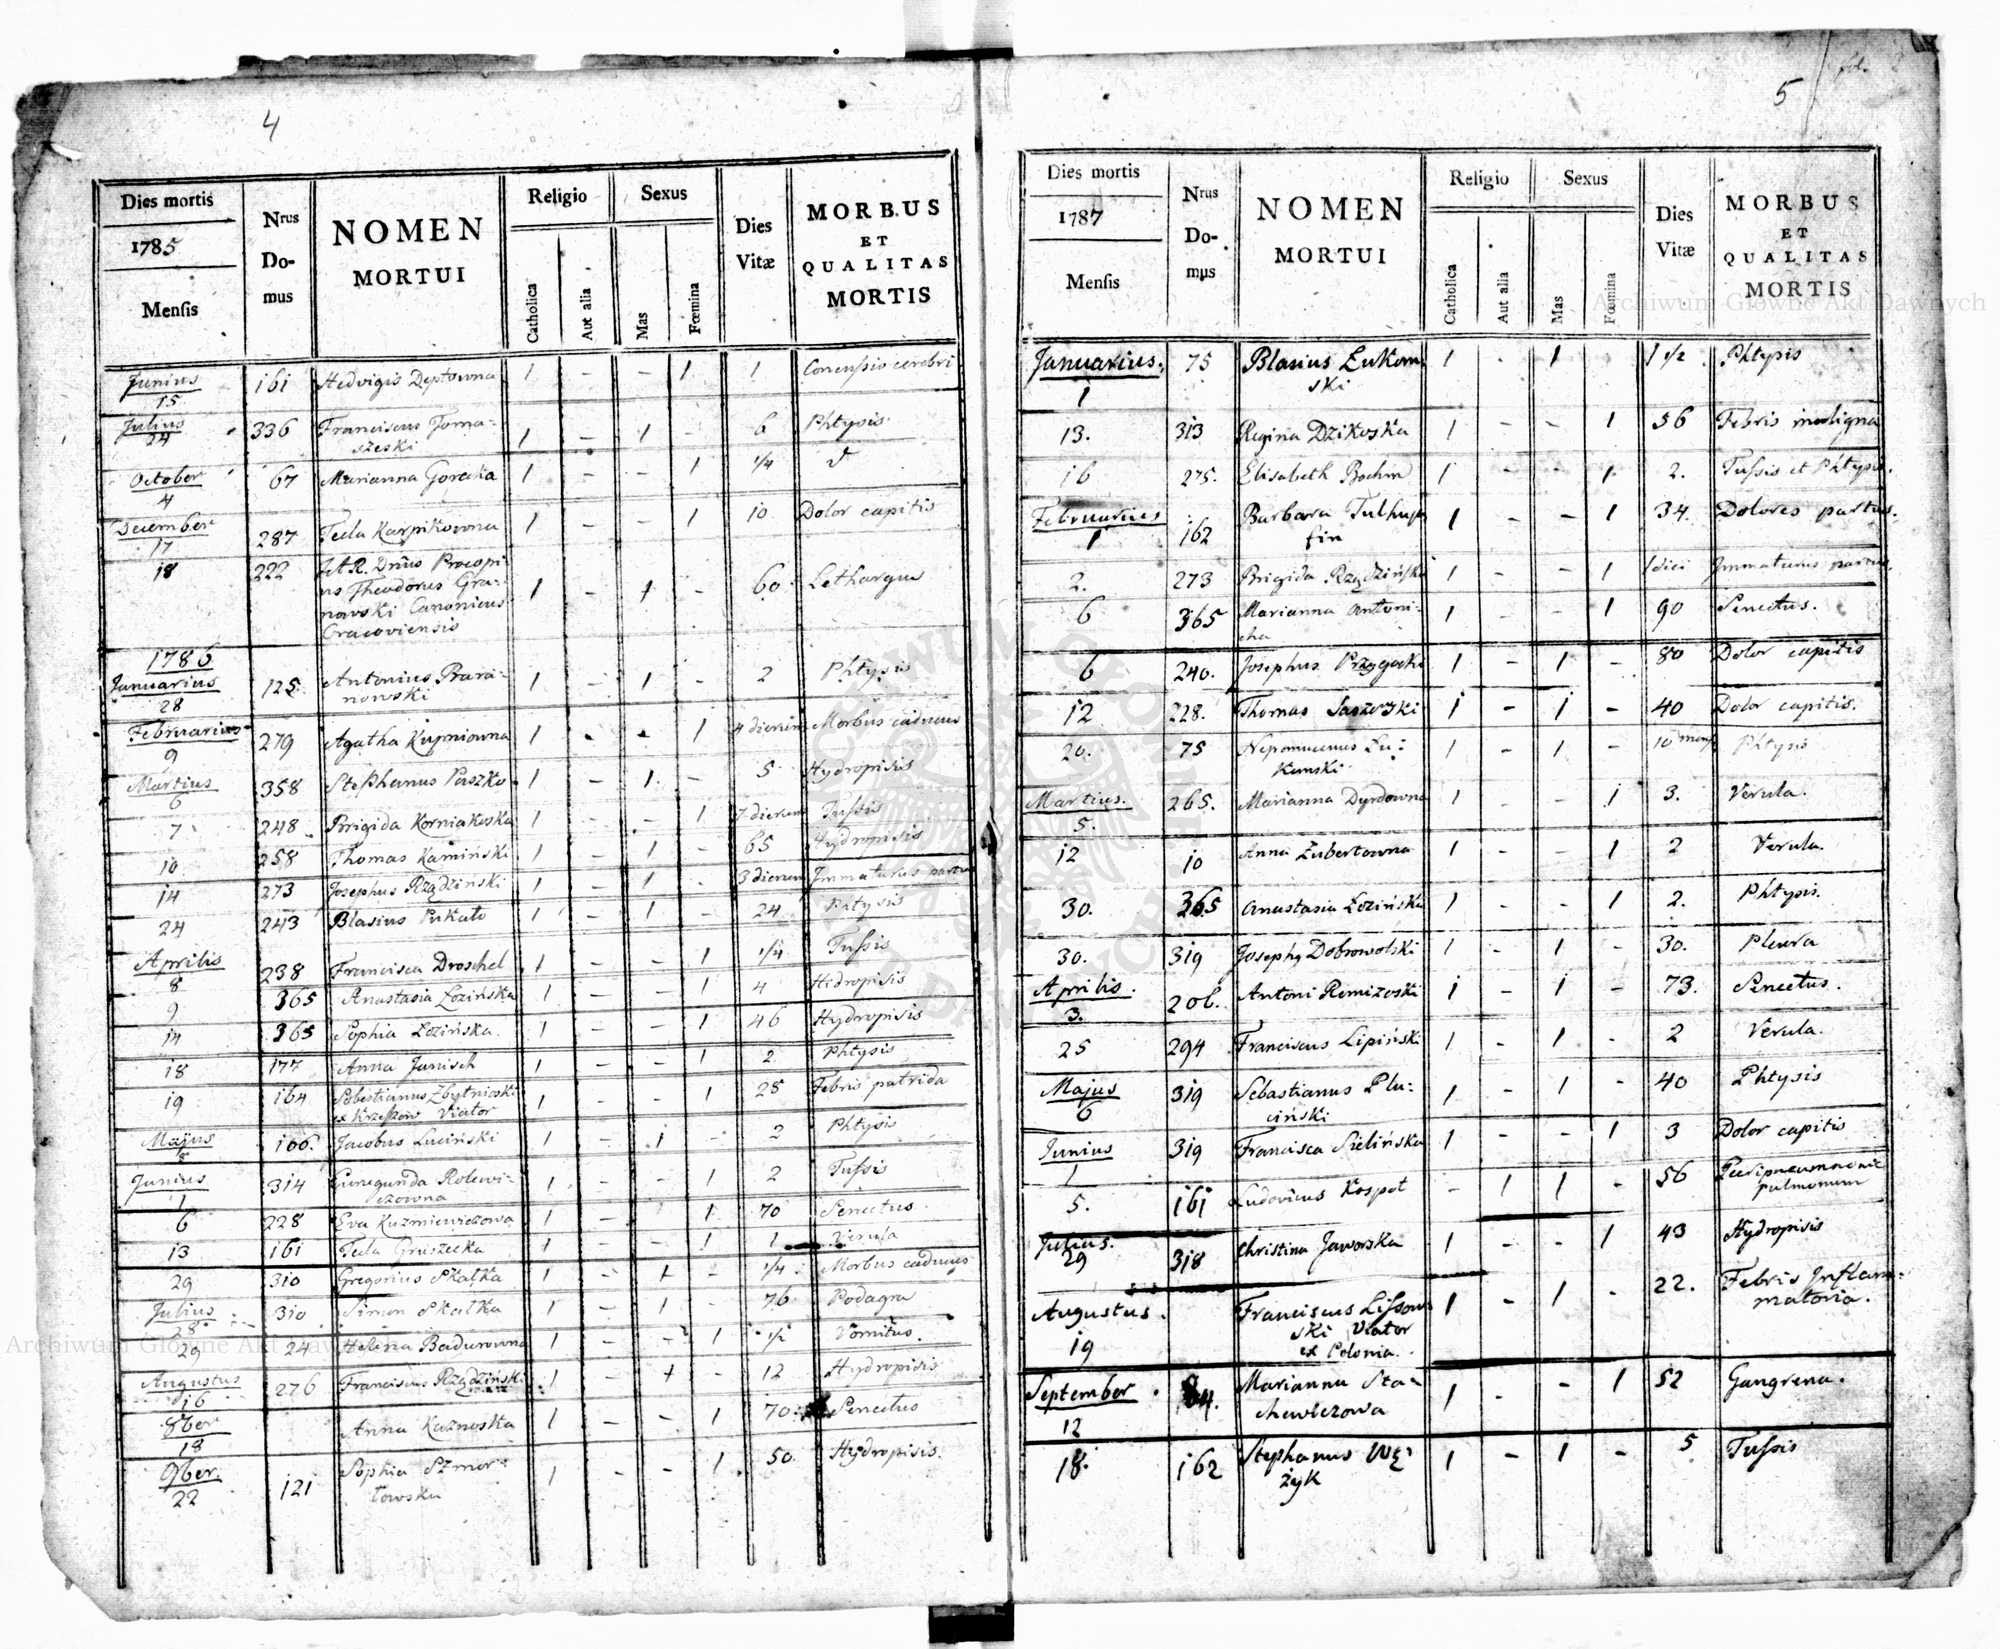 4
Dies mortis
1785
Mensis
Nrus Domus
NOMEN MORTUI
Religio
Catholica
Aut alia
Sexus
Mas
Fœmina
Dies Vitæ
MORBUS ET QUALITAS MORTIS
Junius 15 161 Hedvigis Deptowna 1 - - 1 1 cerebri
Julius 24 336 Franciscus Toma-
szeski 1 - 1 6 Phtysis
October 4 67 Marianna Gorecka 1 - - 1 1/4
December 17 287 Tecla Karpikowna 1 - - 1 10 Dolor capitis
18 222 Procopi-
us Theodorus Gra-
nowski Canonicus
Cracoviensis 1 - 1 - 60 Lethargus
1786
Januarius 28 125 Antonius Bara-
nowski 1 - 1 - 2 Phtysis
Februarius 9 279 Agatha Kupniowna 1 - - 1 4 dierum Morbus caducus
Martius 6 358 Stephanus Paszko 1 - 1 - 5 Hydropisis
7 248 Brigida Korniakoska 1 - - 1 7 dierum Tussis
10 258 Thomas Kamiński 1 - 1 - 65 Hydropisis
14 273 Josephus Rządziński 1 - 1 - 3 dierum Immaturus partus
24 243 Blasius Pukalo 1 - 1 - 24 Phtysis
Aprilis 8 238 Francisca Droschel 1 - - 1 1/4 Tussis
9 365 Anastasia Łozińska 1 - - 1 4 Hidropisis
14 365 Sophia Łozińska 1 - - 1 46 Hydropisis
18 177 Anna Janisch 1 - - 1 2 Phtysis
19 164 Sebestianus Zbytnioski
ex Krzeszow Viator 1 - - 1 28 Febris patrida
Majus 8 106. Jacobus Luciński 1 - 1 - 2 Phtysis
Junius 1 314 Cunegunda Rolewi-
czowna 1 - - 1 2 Tussis
6 228 Eva Kuzmiewiczowa 1 - - 1 70 Senectus
13 161 Tecla Gruszecka 1 - - 1 1 Verula
29 310 Gregorius Skałka 1 - 1 - 1/4 Morbus caducus
Julius 28 310 Simon Skałka 1 - 1 - 76 Podagra
29 24 Helena Badurowna 1 - - 1 1/2 Vomitus.
Augustus 16 276 Franciscus Rządziński 1 - 1 - 12 Hydropisis
8ber 18 Anna Kuznoska 1 - - 1 70 Senectus
9ber 22 121 Sophia Szmor-
towska 1 - - 1 50 Hydropisis.
5
Dies mortis
1787
Mensis
Nrus Domus
NOMEN MORTUI
Religio
Catholica
Aut alia
Sexus
Mas
Fœmina
Dies Vitæ
MORBUS ET QUALITAS MORTIS
Januarius. 1 75 Blasius Łukom-
ski 1 - 1 1 1/2 Phtysis
13. 313 Regina Dzikoska 1 - - 1 56 Febris maligna
16 275. Elisabeth Boehm 1 - - 1 2. Tussis et Phtysis.
Februarius 1 162 Barbara
fin 1 - - 1 34. Dolores partus.
2. 273 Brigida Rządzińska 1 - - 1 1 diei Immaturus partus.
6 365 Marianna Antoni-
cha 1 - - 1 90 Senectus.
6 240. Josephus Przygocki 1 - 1 - 80 Dolor capitis
12 228. Thomas 1 - 1 - 40 Dolor capitis.
20. 75 Nepomucenus Łu-
komski 1 - 1 - 10 mens Phtysis
Martius. 5. 265. Marianna Dyrdowna 1 - - 1 3. Verula.
12 10 Anna Zubertowna 1 - - 1 2 Verula.
30. 365 Anastasia Łozińska 1 - - 1 2. Phtysis.
30. 319 Joseph9 Dobrowolski 1 - 1 - 30. Pleura
Aprilis. 3. 206. Antoni Remizoski 1 - 1 - 73. Senectus.
25 294 Franciscus Lipiński 1 - 1 - 2 Verula.
Majus 6 319 Sebastianus Plu-
ciński 1 - 1 - 40 Phtysis
Junius 1 319 Francisca Sielińska 1 - - 1 3 Dolor capitis
5. 161 Ludovicus Kospot - 1 1 - 56 pulmonum
Julius. 29 318 Christina Jaworska 1 - - 1 43 Hydropisis
Augustus. 19 Franciscus Lissow-
ski Viator
ex Polonia. 1 - 1 - 22. Febris Inflam-
matoria.
September. 12 Marianna Sta-
chewiczowa 1 - - 1 52 Gangrena.
18. 162 Stephanus Wę-
żyk 1 - 1 - 5 Tussis
Archiwum Główne Akt Dawnych
Archiwum Główne Akt Dawnych
ARCHIWUM GŁÓWNE AKT DAWNYCH